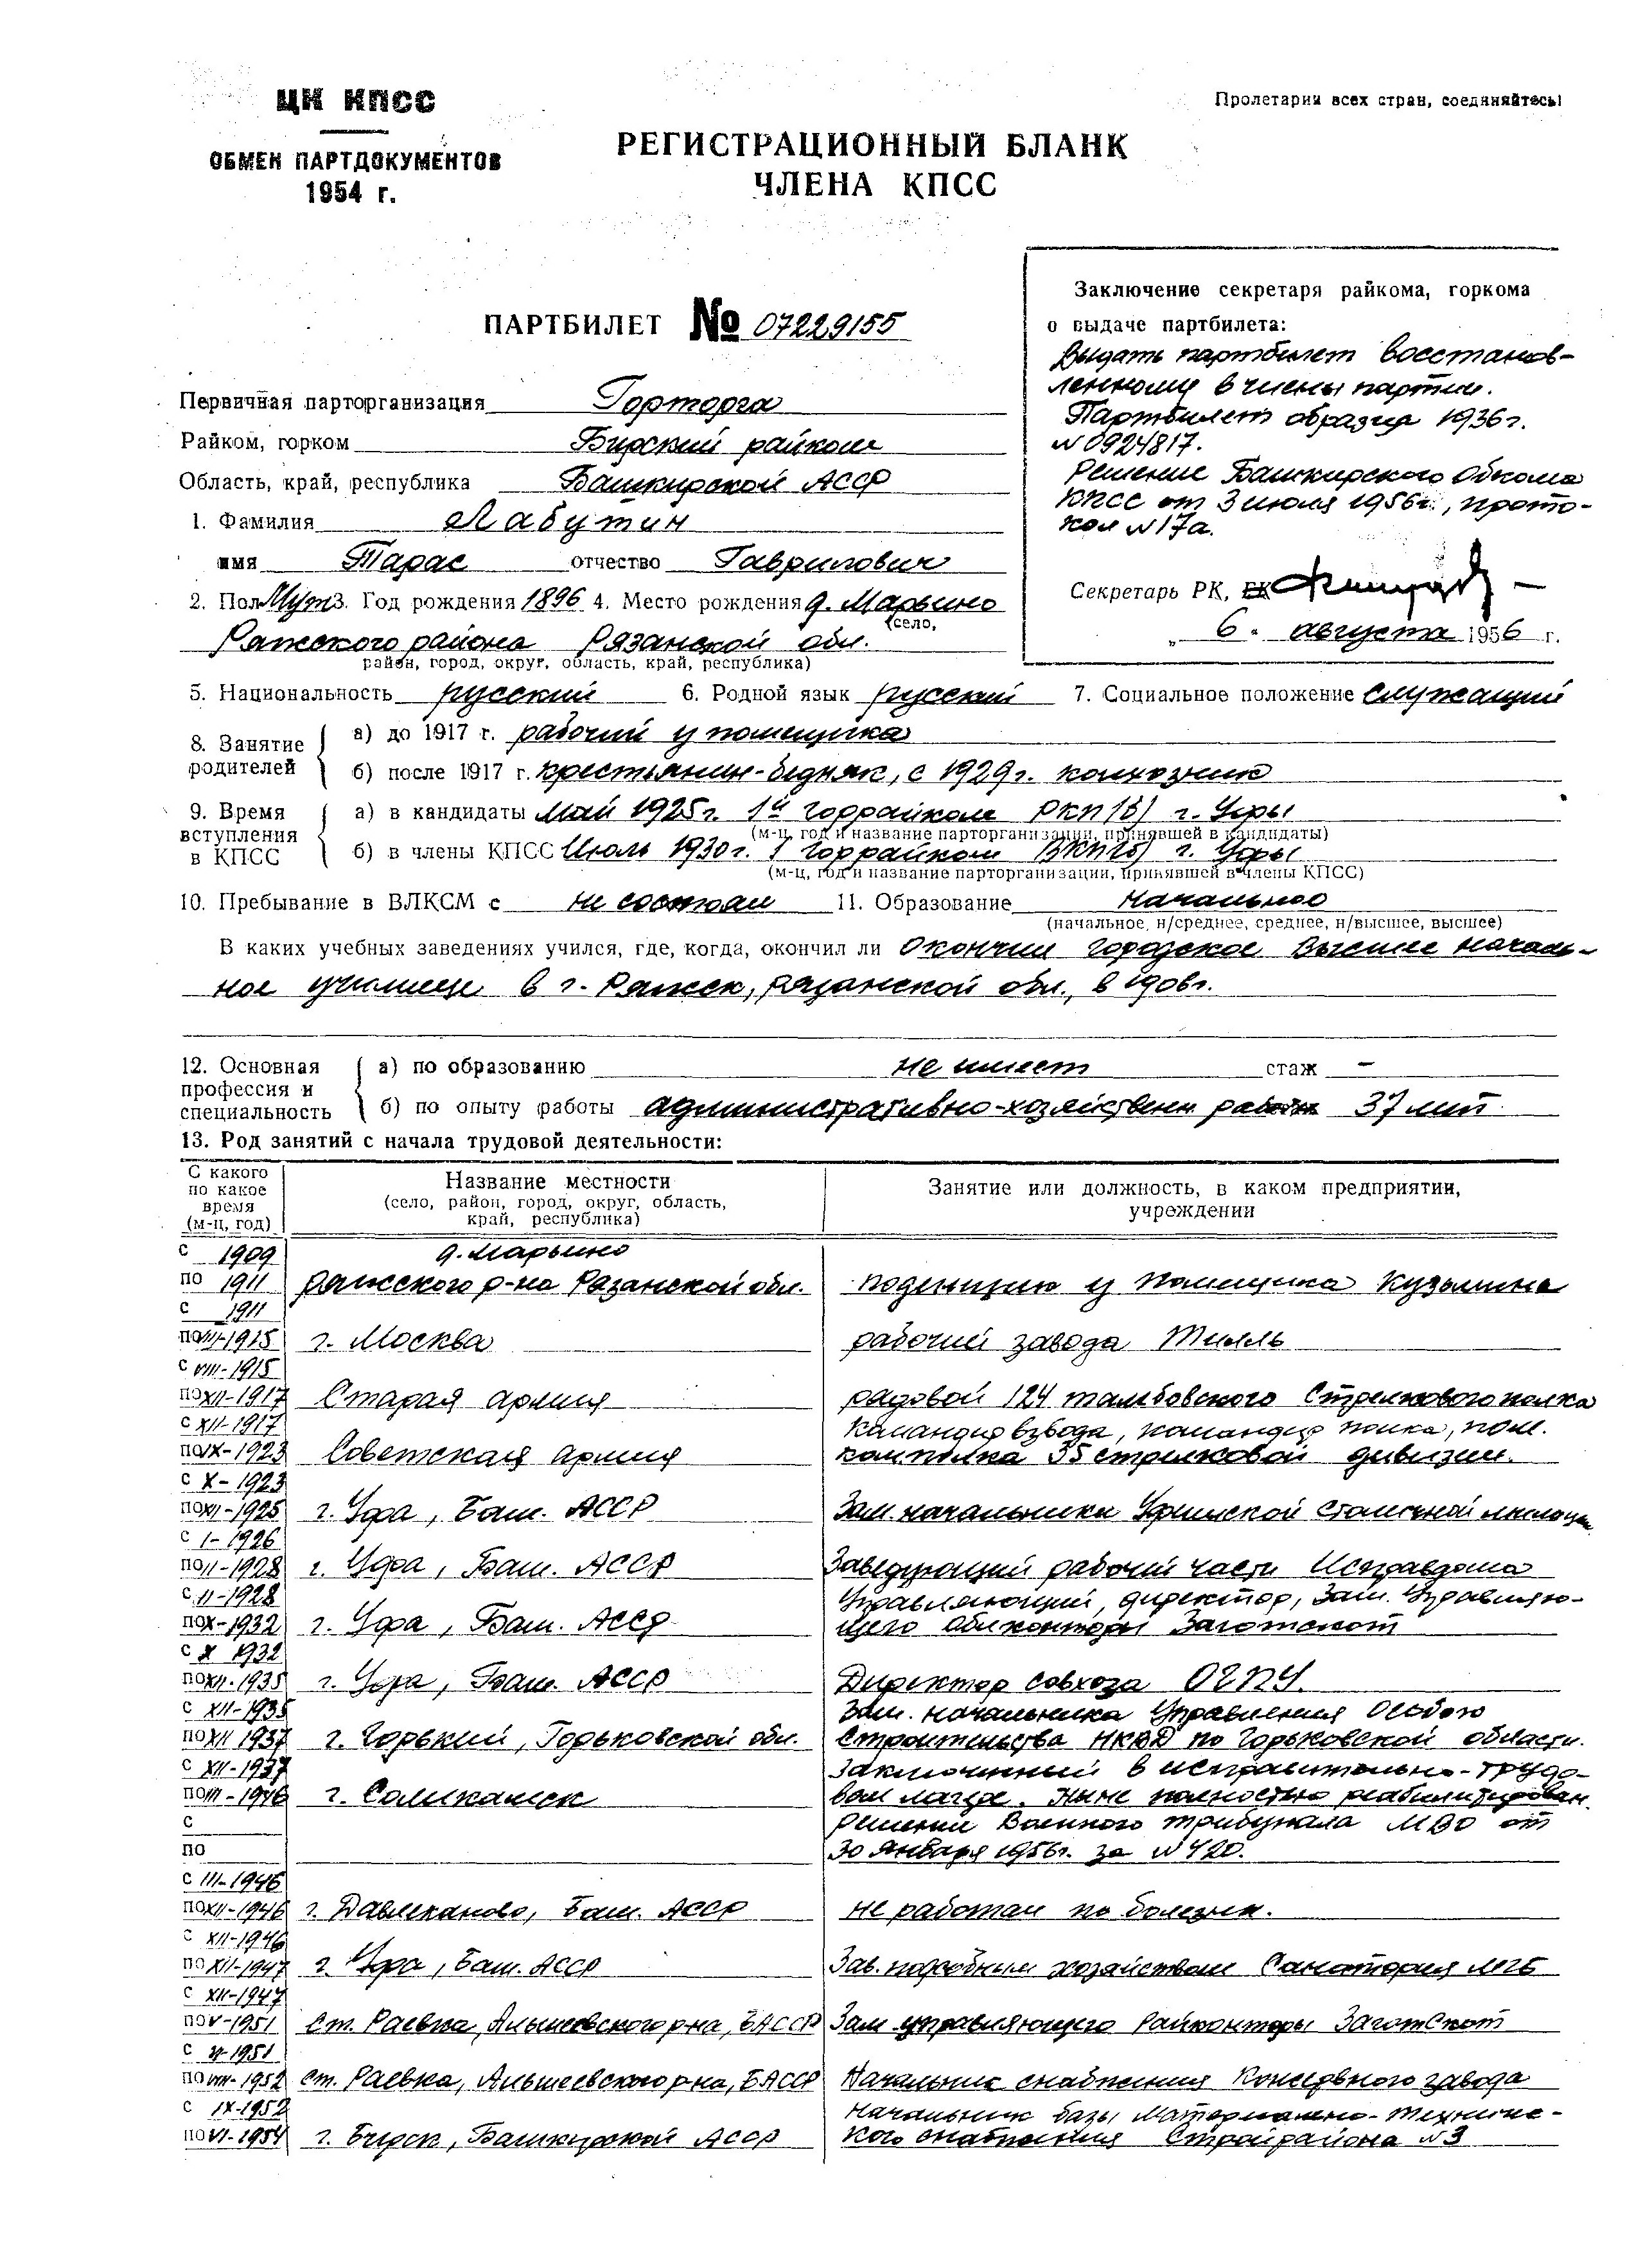 ЦК КПСС
ОБМЕН ПАРТДОКУМЕНТОВ
1954 г.
Пролетарии всех стран, соединяйтесь!
РЕГИСТРАЦИОННЫЙ БЛАНК
ЧЛЕНА КПСС
ПАРТБИЛЕТ № 07229155
Заключение секретаря райкома, горкома
о выдаче партбилета:
Выдать партбилет восстанов-
ленному в члены партии.
Партбилет образца 1936 г.
N 0924817.
Решение Башкирского Обкома
КПСС от 3 июля 1956 г., прото-
кол N 17а.
Секретарь РК, ГК
„ 6 " августа 1956 г.
Первичная парторганизация Горторга
Райком, горком Бирский райком
Область, край, республика Башкирской АССР
1. Фамилия Лабутин
имя Тарас отчество Гаврилович
2. Пол Муж 3. Год рождения 1896 4. Место рождения д. Марьино
(село,
Ряжского района Рязанской обл.
район, город, округ, область, край, республика)
5. Национальность русский 6. Родной язык русский 7. Социальное положение служащий
8. Занятие родителей
а) до 1917 г. рабочий у помещика
б) после 1917 г. крестьянин-бедняк, с 1929 г. колхозник
9. Время вступления в КПСС
а) в кандидаты май 1925 г. 1й горрайком РКП(б) г. Уфы
(м-ц, год и название парторганизации, принявшей в кандидаты)
б) в члены КПСС Июль 1930 г. 1 горрайком ВКП(б) г. Уфы
(м-ц, год и название парторганизации, принявшей в члены КПСС)
10. Пребывание в ВЛКСМ с не состоял 11. Образование начальное
(начальное, н/среднее, среднее, н/высшее, высшее)
В каких учебных заведениях учился, где, когда, окончил ли Окончил городское высшее началь-
ное училище в г. Ряжск, Рязанской обл., в 1908 г.
12. Основная профессия и специальность
а) по образованию не имеет стаж –
б) по опыту работы административно-хозяйственн работн 37 лет
13. Род занятий с начала трудовой деятельности:
С какого по какое время (м-ц, год)
Название местности
(село, район, город, округ, область,
край, республика)
Занятие или должность, в каком предприятии,
учреждении
с 1909 д. Марьино
по 1911 Ряжского р-на Рязанской обл. поденщик у помещика Кузьмина
с 1911
по III-1915 г. Москва рабочий завода Тилль
с VIII-1915
по XII-1917 Старая армия рядовой 124 тамбовского Стрелкового полка
с XII-1917 Командир взвода, командир полка, пом.
по IX-1923 Советская армия комполка 35 стрелковой дивизии.
с X-1923
по XII-1925 г. Уфа, Баш. АССР Зам. начальника Уфимской столичной милиции
с I-1926
по II-1928 г. Уфа, Баш. АССР Заведующий рабочей части Исправдома
с II-1928 Управляющий, директор, Зам. Управляю-
по X-1932 г. Уфа, Баш. АССР щего Облконторы Заготскот
с X 1932
по XII-1935 г. Уфа, Баш. АССР Директор совхоза ОГПУ.
с XII-1935 Зам. начальника Управления Особого
по XII 1937 г. Горький, Горьковской обл. строительства НКВД по Горьковской области.
с XII-1937 Заключенный в исправительно-трудо-
по III-1946 г. Соликамск вом лагере. Ныне полностью реабилитирован.
с Решение Военного трибунала МВО от
по 30 января 1956 г. за N 420.
с III-1946
по XII-1946 г. Давлеканово, Баш. АССР не работал по болезни.
с XII-1946
по XII-1947 г. Уфа, Баш. АССР Зав. подсобным хозяйством Санатория МГБ
с XII-1947
по V-1951 ст. Раевка, Альшеевского р-на, БАССР Зам управляющего Райконторы Заготскот
с V-1951
по VIII-1952 ст. Раевка, Альшеевского р-на, БАССР Начальник снабжения Консервного завода
с IX-1952 начальник базы Материально-техниче-
по VI-1954 г. Бирск, Башкирской АССР кого снабжения Стройрайона N 3